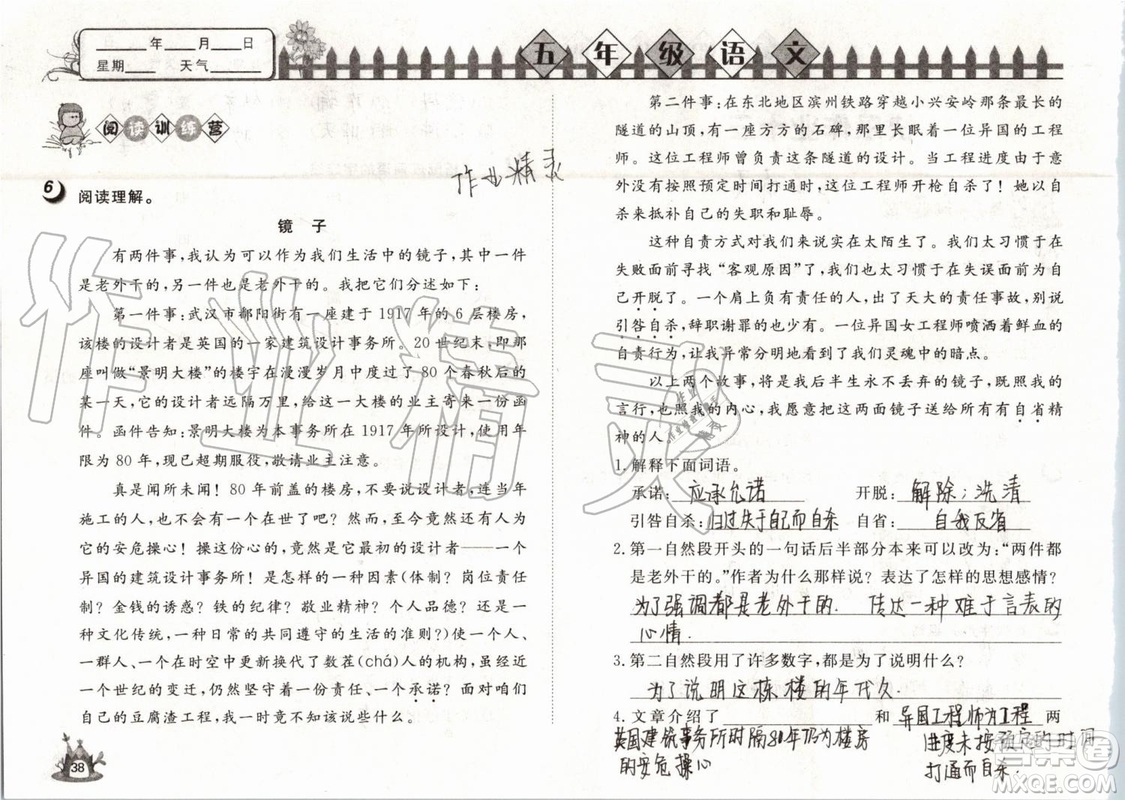 ____年____月____日
星期____ 天气____
五年级语文
阅读训练营
作业精灵
6 阅读理解。
镜 子
有两件事,我认为可以作为我们生活中的镜子,其中一件
是老外干的,另一件也是老外干的。我把它们分述如下:
第一件事:武汉市鄱阳街有一座建于1917年的6层楼房,
该楼的设计者是英国的一家建筑设计事务所。20世纪末,即
那座叫做“景明大楼”的楼宇在漫漫岁月中度过了80个春秋后的
某一天,它的设计者远隔万里,给这一大楼的业主寄来一份函
件。函件告知:景明大楼为本事务所在1917年所设计,使用年
限为80年,现已超期服役,敬请业主注意。
真是闻所未闻!80年前盖的楼房,不要说设计者,连当年
施工的人,也不会有一个在世了吧?然而,至今竟然还有人为
它的安危操心!操这份心的,竟然是它最初的设计者——一个
异国的建筑设计事务所!是怎样的一种因素(体制?岗位责任
制?金钱的诱惑?铁的纪律?敬业精神?个人品德?还是一
种文化传统,一种日常的共同遵守的生活的准则?)使一个人、
一群人、一个在时空中更新换代了数茬(chá)人的机构,虽历经
一个世纪的变迁,仍然坚守着一份责任、一个承诺?面对咱们
自己的豆腐渣工程,我一时竟不知该说些什么。
38
第二件事:在东北地区滨州铁路穿越小兴安岭那条最长的
隧道的山顶,有一座方方的石碑,那里长眠着一位异国的工程
师。这位工程师曾负责这条隧道的设计。当工程进度由于意
外没有按照预定时间打通时,这位工程师开枪自杀了!她以自
杀来抵补自己的失职和耻辱。
这种自责方式对我们来说实在太陌生了。我们太习惯于在
失败时寻找“客观原因”了!我们,也太习惯于在失误面前为自
己开脱了。一个肩上负有责任的人,出了天大的责任事故,别说
引咎自杀,辞职谢罪的也少有。一位异国女工程师喷洒着鲜血的
自责行为,让我异常分明地看到了我们灵魂中的暗点。
以上两个故事,将是我后半生永不丢弃的镜子,既照我的
言行,也照我的内心,我愿意把这两面镜子送给所有有自省精
神的人。
1.解释下面词语。
承诺:应承允诺 开脱:解除;洗清
引咎自杀:归过失于自己而自杀 自省:自我反省
2.第一自然段开头的一句话后半部分本来可以改为:“两件都
是老外干的。”作者为什么那样说?表达了怎样的思想感情?
为了强调都是老外干的. 传达一种难于言表的
心情.
3.第二自然段用了许多数字,都是为了说明什么?
为了说明这栋楼的年代久.
4.文章介绍了____和异国工程师为工程两
英国建筑事务所时隔80年仍为楼房
的安危操心
进度未按预定的时间
打通而自杀.
作业精灵
答案圈
MXQE.COM